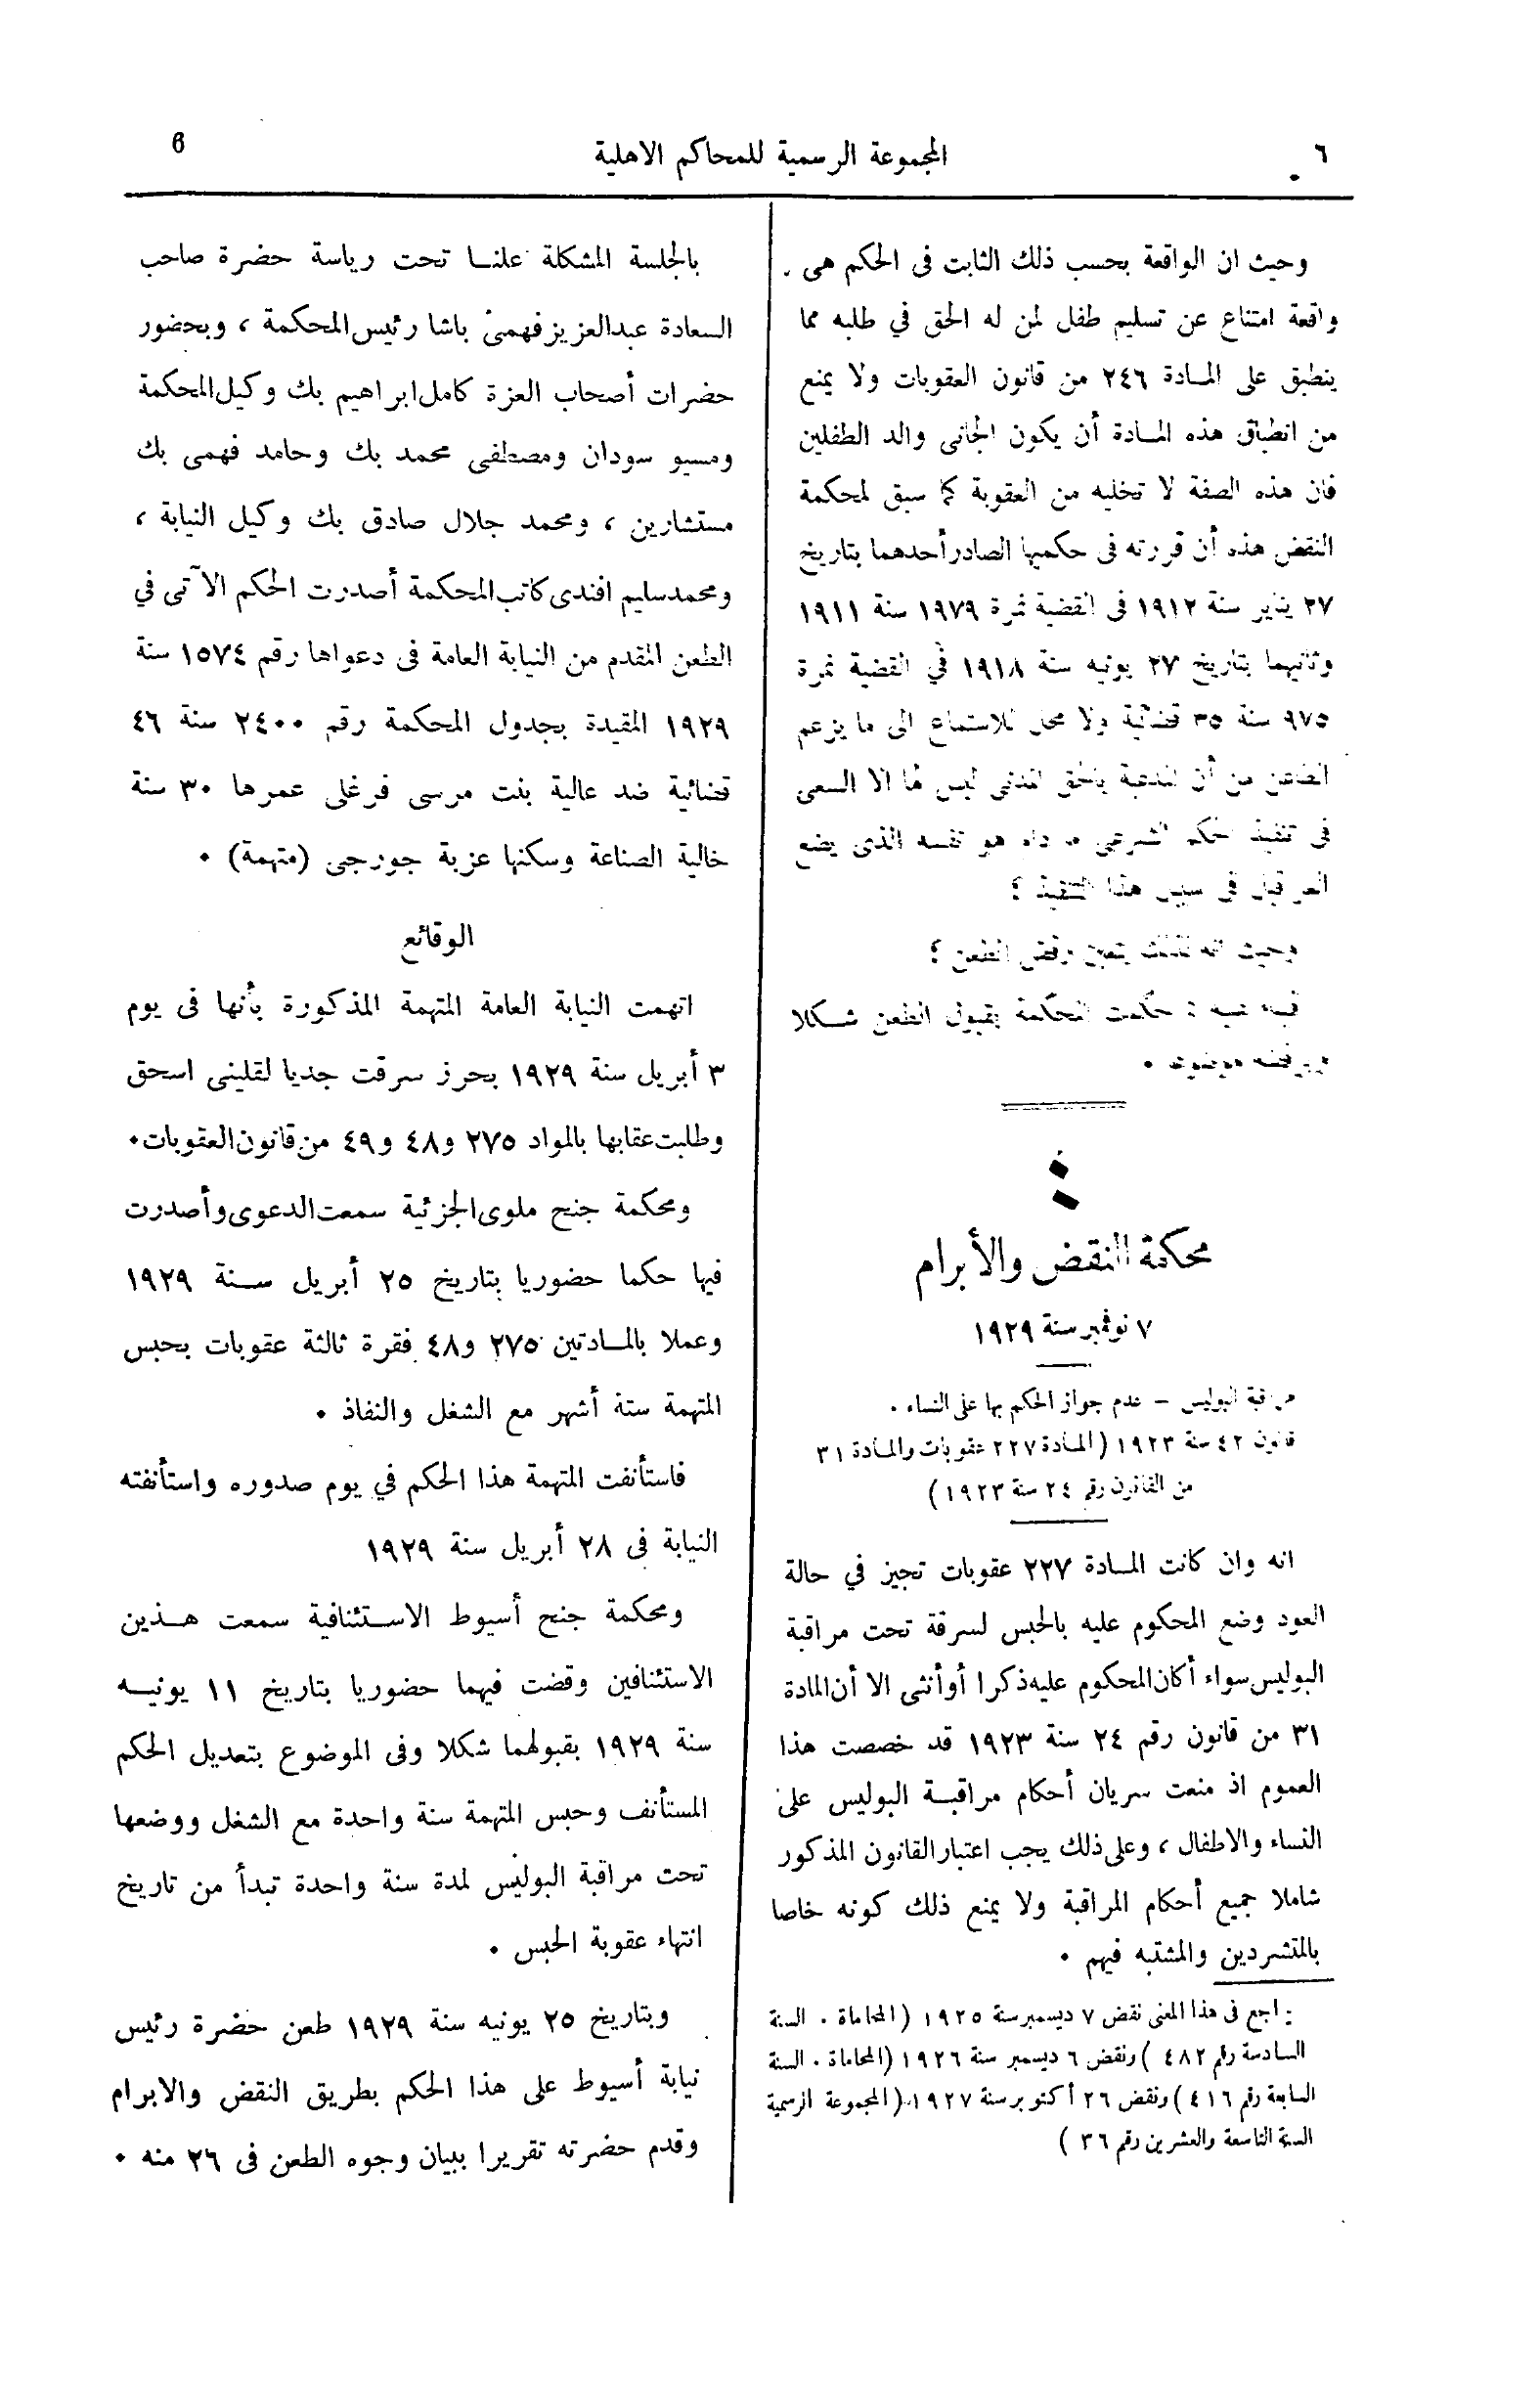 ٦
المجموعة الرسمية للمحاكم الاهلية
6
وحيث ان الواقعة بحسب ذلك الثابت فى الحكم هى
واقعة امتناع عن تسليم طفل لمن له الحق في طلبه مما
ينطبق على المادة ٢٤٦ من قانون العقوبات ولا يمنع
من انطباق هذه المادة أن يكون الجانى والد الطفلين
فان هذه الصفة لا تخليه من العقوبة كما سبق لمحكمة
النقض هذه أن قررته فى حكميها الصادر أحدهما بتاريخ
٢٧ يناير سنة ١٩١٢ فى القضية نمرة ١٩٧٩ سنة ١٩١١
وثانيهما بتاريخ ٢٧ يونيه سنة ١٩١٨ في القضية نمرة
٩٧٥ سنة ٣٥ قضائية ولا محل للاستماع الى ما يزعم
الطاعن من أن المدعية بالحق المدنى ليس لها الا السعى
فى تنفيذ الحكم الشرعى ما دام هو نفسه الذى يضع
العراقيل فى سبيل هذا التنفيذ ؟
وحيث انه لذلك يتعين رفض الطعن ؟
فبناء عليه : حكمت المحكمة بقبول الطعن شكلا
وبرفضه موضوعا ٠
محكمة النقض والأبرام
٧ نوفمبر سنة ١٩٢٩
مراقبة البوليس – عدم جواز الحكم بها على النساء ٠
قانون ٤٢ سنة ١٩٢٣ (المادة ٢٢٧ عقوبات والمادة ٣١
من القانون رقم ٢٤ سنة ١٩٢٣)
انه وان كانت المادة ٢٢٧ عقوبات تجيز في حالة
العود وضع المحكوم عليه بالحبس لسرقة تحت مراقبة
البوليس سواء أكان المحكوم عليه ذكرا أو أنثى الا أن المادة
٣١ من قانون رقم ٢٤ سنة ١٩٢٣ قد خصصت هذا
العموم اذ منعت سريان أحكام مراقبة البوليس على
النساء والاطفال ، وعلى ذلك يجب اعتبار القانون المذكور
شاملا جميع أحكام المراقبة ولا يمنع ذلك كونه خاصا
بالمتشردين والمشتبه فيهم ٠
راجع فى هذا المعنى نقض ٧ ديسمبر سنة ١٩٢٥ (المحاماة ٠ السنة
السادسة رقم ٤٨٢) ونقض ٦ ديسمبر سنة ١٩٢٦ (المحاماة ٠ السنة
السابعة رقم ٤١٦) ونقض ٢٦ أكتوبر سنة ١٩٢٧ (المجموعة الرسمية
السنة التاسعة والعشرين رقم ٣٦)
بالجلسة المشكلة علنا تحت رياسة حضرة صاحب
السعادة عبدالعزيز فهمى باشا رئيس المحكمة ، وبحضور
حضرات أصحاب العزة كامل ابراهيم بك وكيل المحكمة
ومسيو سودان ومصطفى محمد بك وحامد فهمى بك
مستشارين ، ومحمد جلال صادق بك وكيل النيابة ،
ومحمد سليم افندى كاتب المحكمة أصدرت الحكم الآتى في
الطعن المقدم من النيابة العامة فى دعواها رقم ١٥٧٤ سنة
١٩٢٩ المقيدة بجدول المحكمة رقم ٢٤٠٠ سنة ٤٦
قضائية ضد عالية بنت مرسى فرغلى عمرها ٣٠ سنة
خالية الصناعة وسكنها عزبة جورجى (متهمة) ٠
الوقائع
اتهمت النيابة العامة المتهمة المذكورة بأنها فى يوم
٣ أبريل سنة ١٩٢٩ بحرز سرقت جديا لقلينى اسحق
وطلبت عقابها بالمواد ٢٧٥ و٤٨ و٤٩ من قانون العقوبات ٠
ومحكمة جنح ملوى الجزئية سمعت الدعوى وأصدرت
فيها حكما حضوريا بتاريخ ٢٥ أبريل سنة ١٩٢٩
وعملا بالمادتين ٢٧٥ و٤٨ فقرة ثالثة عقوبات بحبس
المتهمة ستة أشهر مع الشغل والنفاذ ٠
فاستأنفت المتهمة هذا الحكم في يوم صدوره واستأنفته
النيابة فى ٢٨ أبريل سنة ١٩٢٩
ومحكمة جنح أسيوط الاستئنافية سمعت هذين
الاستئنافين وقضت فيهما حضوريا بتاريخ ١١ يونيه
سنة ١٩٢٩ بقبولهما شكلا وفى الموضوع بتعديل الحكم
المستأنف وحبس المتهمة سنة واحدة مع الشغل ووضعها
تحت مراقبة البوليس لمدة سنة واحدة تبدأ من تاريخ
انتهاء عقوبة الحبس ٠
وبتاريخ ٢٥ يونيه سنة ١٩٢٩ طعن حضرة رئيس
نيابة أسيوط على هذا الحكم بطريق النقض والابرام
وقدم حضرته تقريرا ببيان وجوه الطعن فى ٢٦ منه ٠